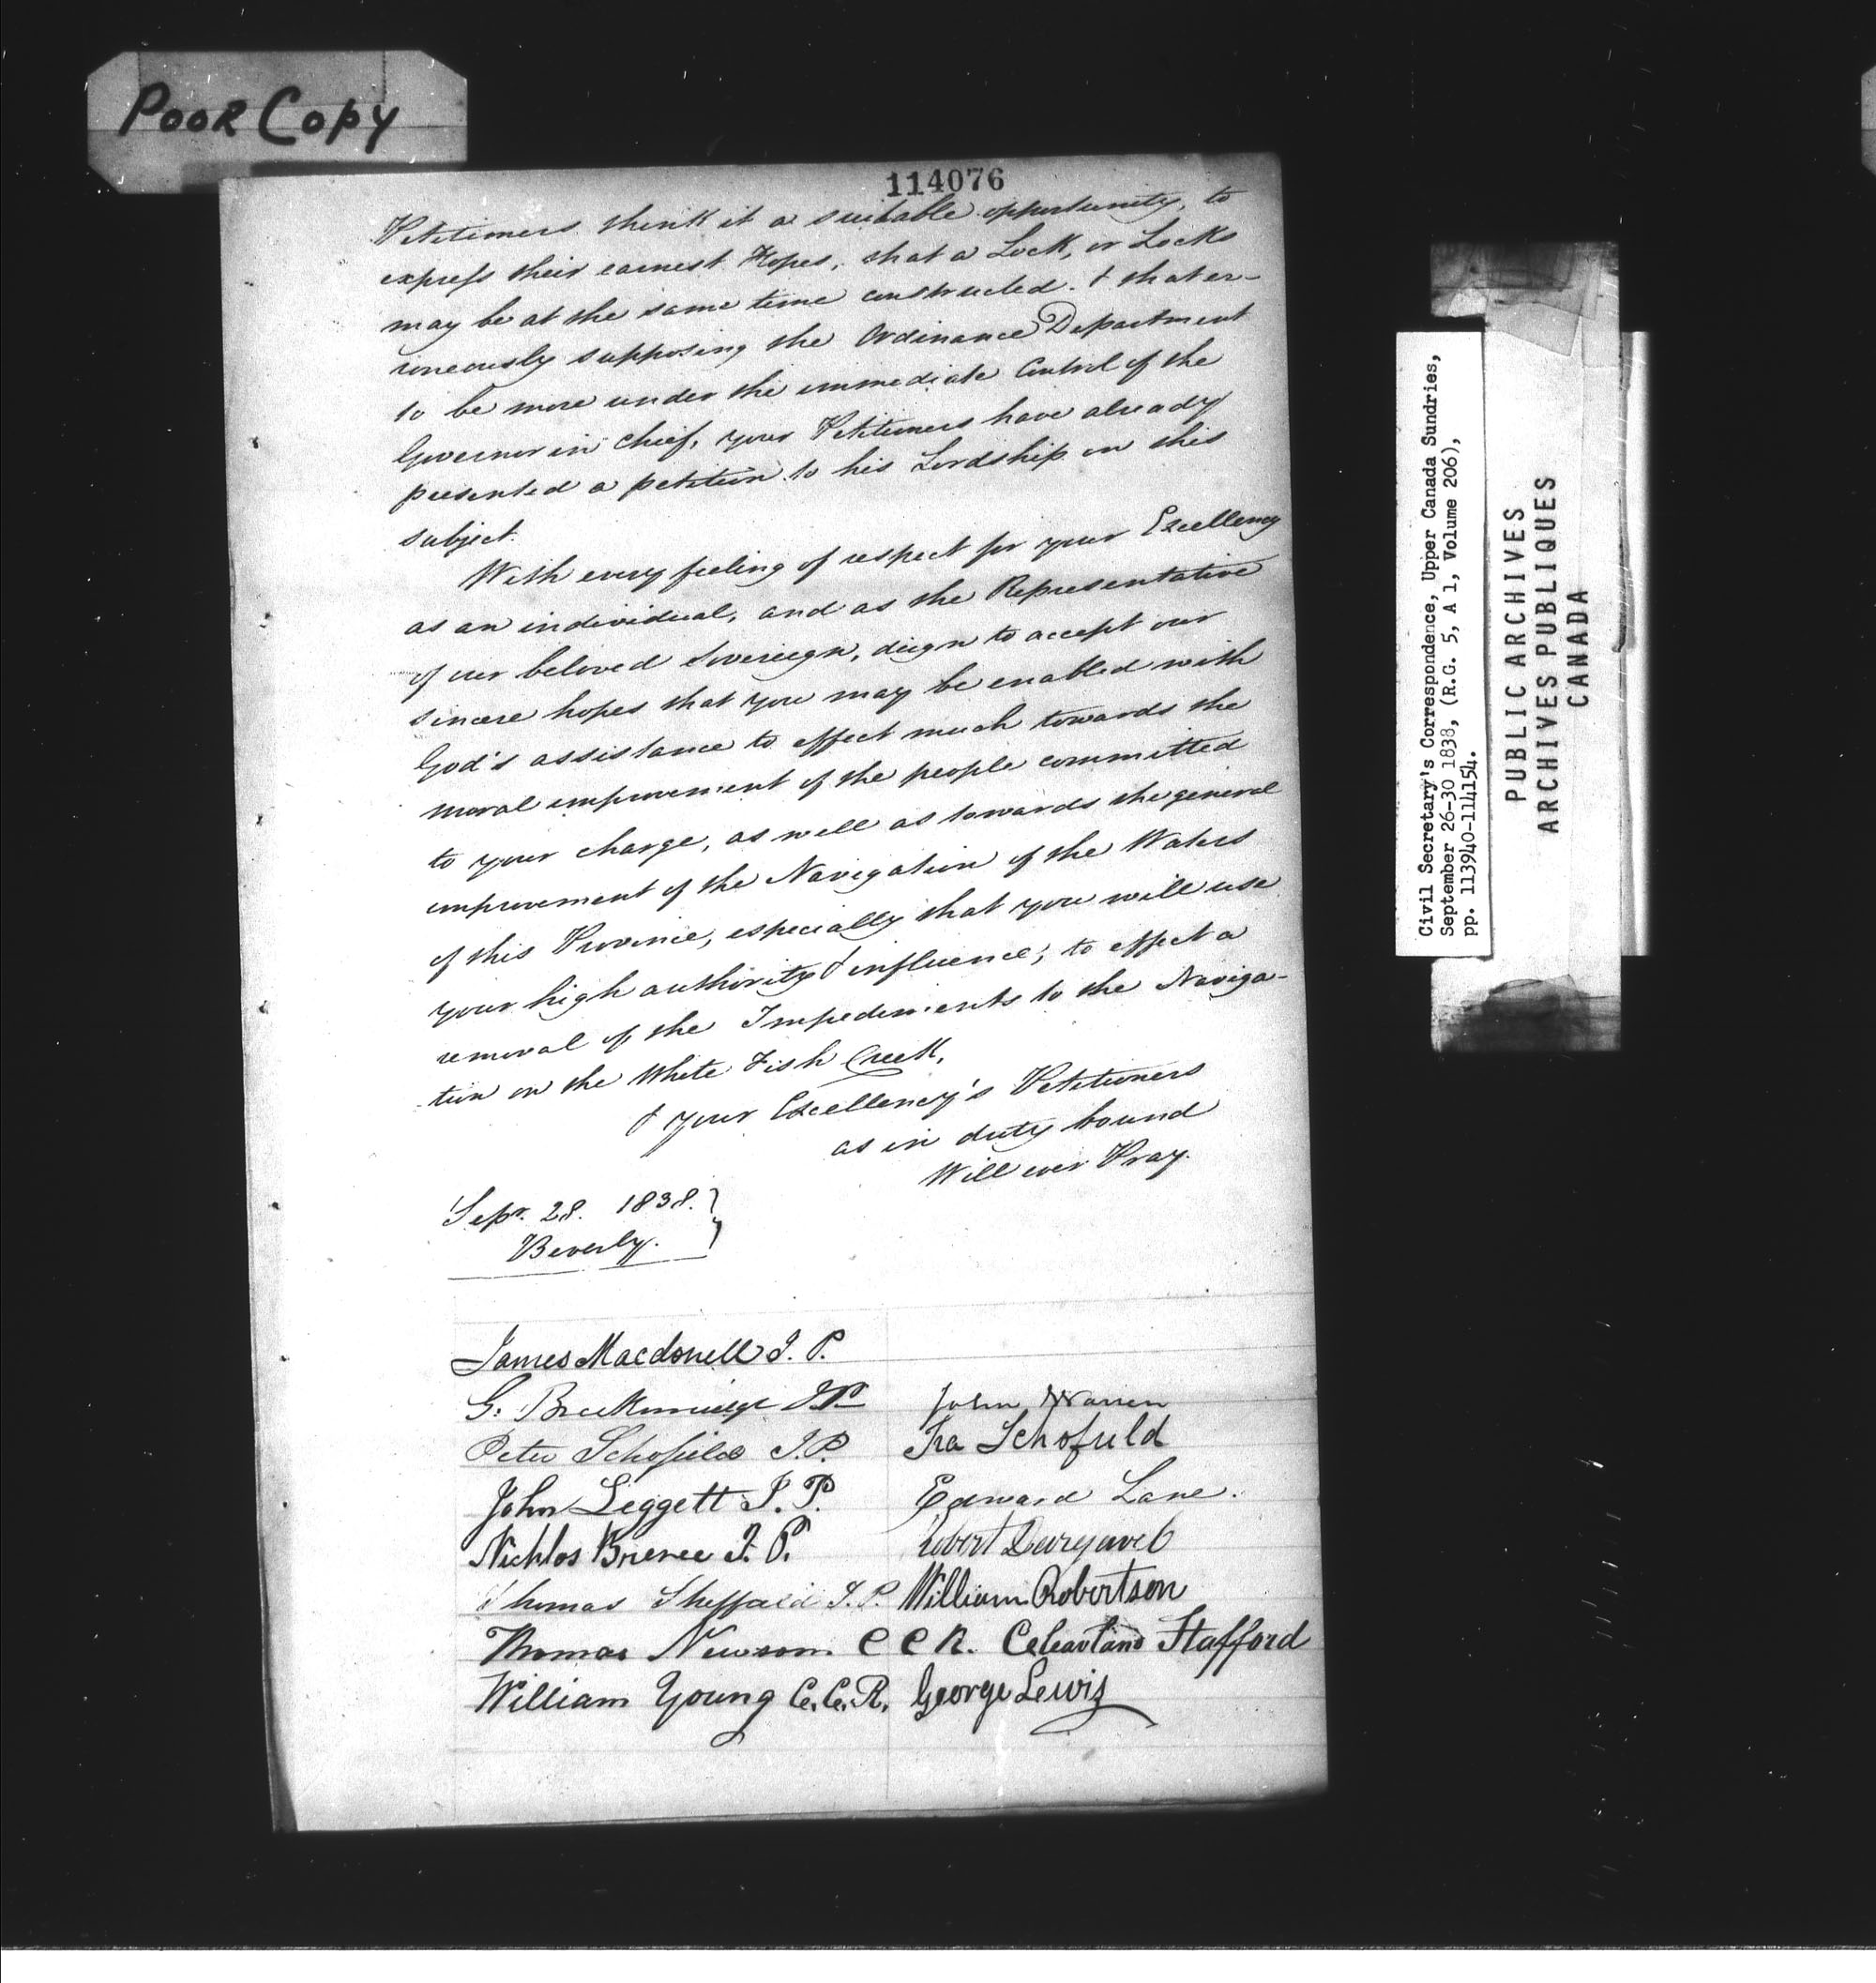 POOR COPY
114076
Petitioners think it a suitable opportunity, to
express their earnest Hopes, that a Lock, or Locks
may be at the same time constructed. & that er-
roneously supposing the Ordinance Department
to be more under the immediate Control of the
Governor in Chief, your Petitioners have already
presented a petition to his Lordship on this
subject.
With every feeling of respect for your Excellency
as an individual, and as the Representative
of our beloved Sovereign, deign to accept our
sincere hopes that you may be enabled with
God's assistance to effect much towards the
moral improvement of the people committed
to your charge, as well as towards the general
improvement of the Navigation of the Waters
of this Province, especially that you will use
your high authority & influence, to effect a
removal of the Impediments to the Naviga-
tion on the White Fish Creek,
& your Excellency's Petitioners
as in duty bound
Will ever Pray.
Sepr. 28. 1838.
Beverly.
James Macdonell J. P.
G. Breckenridge J.P. John Warren
Peter Schofield J.P. Ira Schofield
John Leggett J. P. Edward Lane.
Nichlos J. P. Robert
Thomas Sheffield J. P. William Robertson
Thomas Newsom C C R. Stafford
William Young C. C. R. George Lewis
Civil Secretary's Correspondence, Upper Canada Sundries,
September 26-30 1838, (R.G. 5, A 1, Volume 206),
pp. 113940-114154.
PUBLIC ARCHIVES
ARCHIVES PUBLIQUES
CANADA